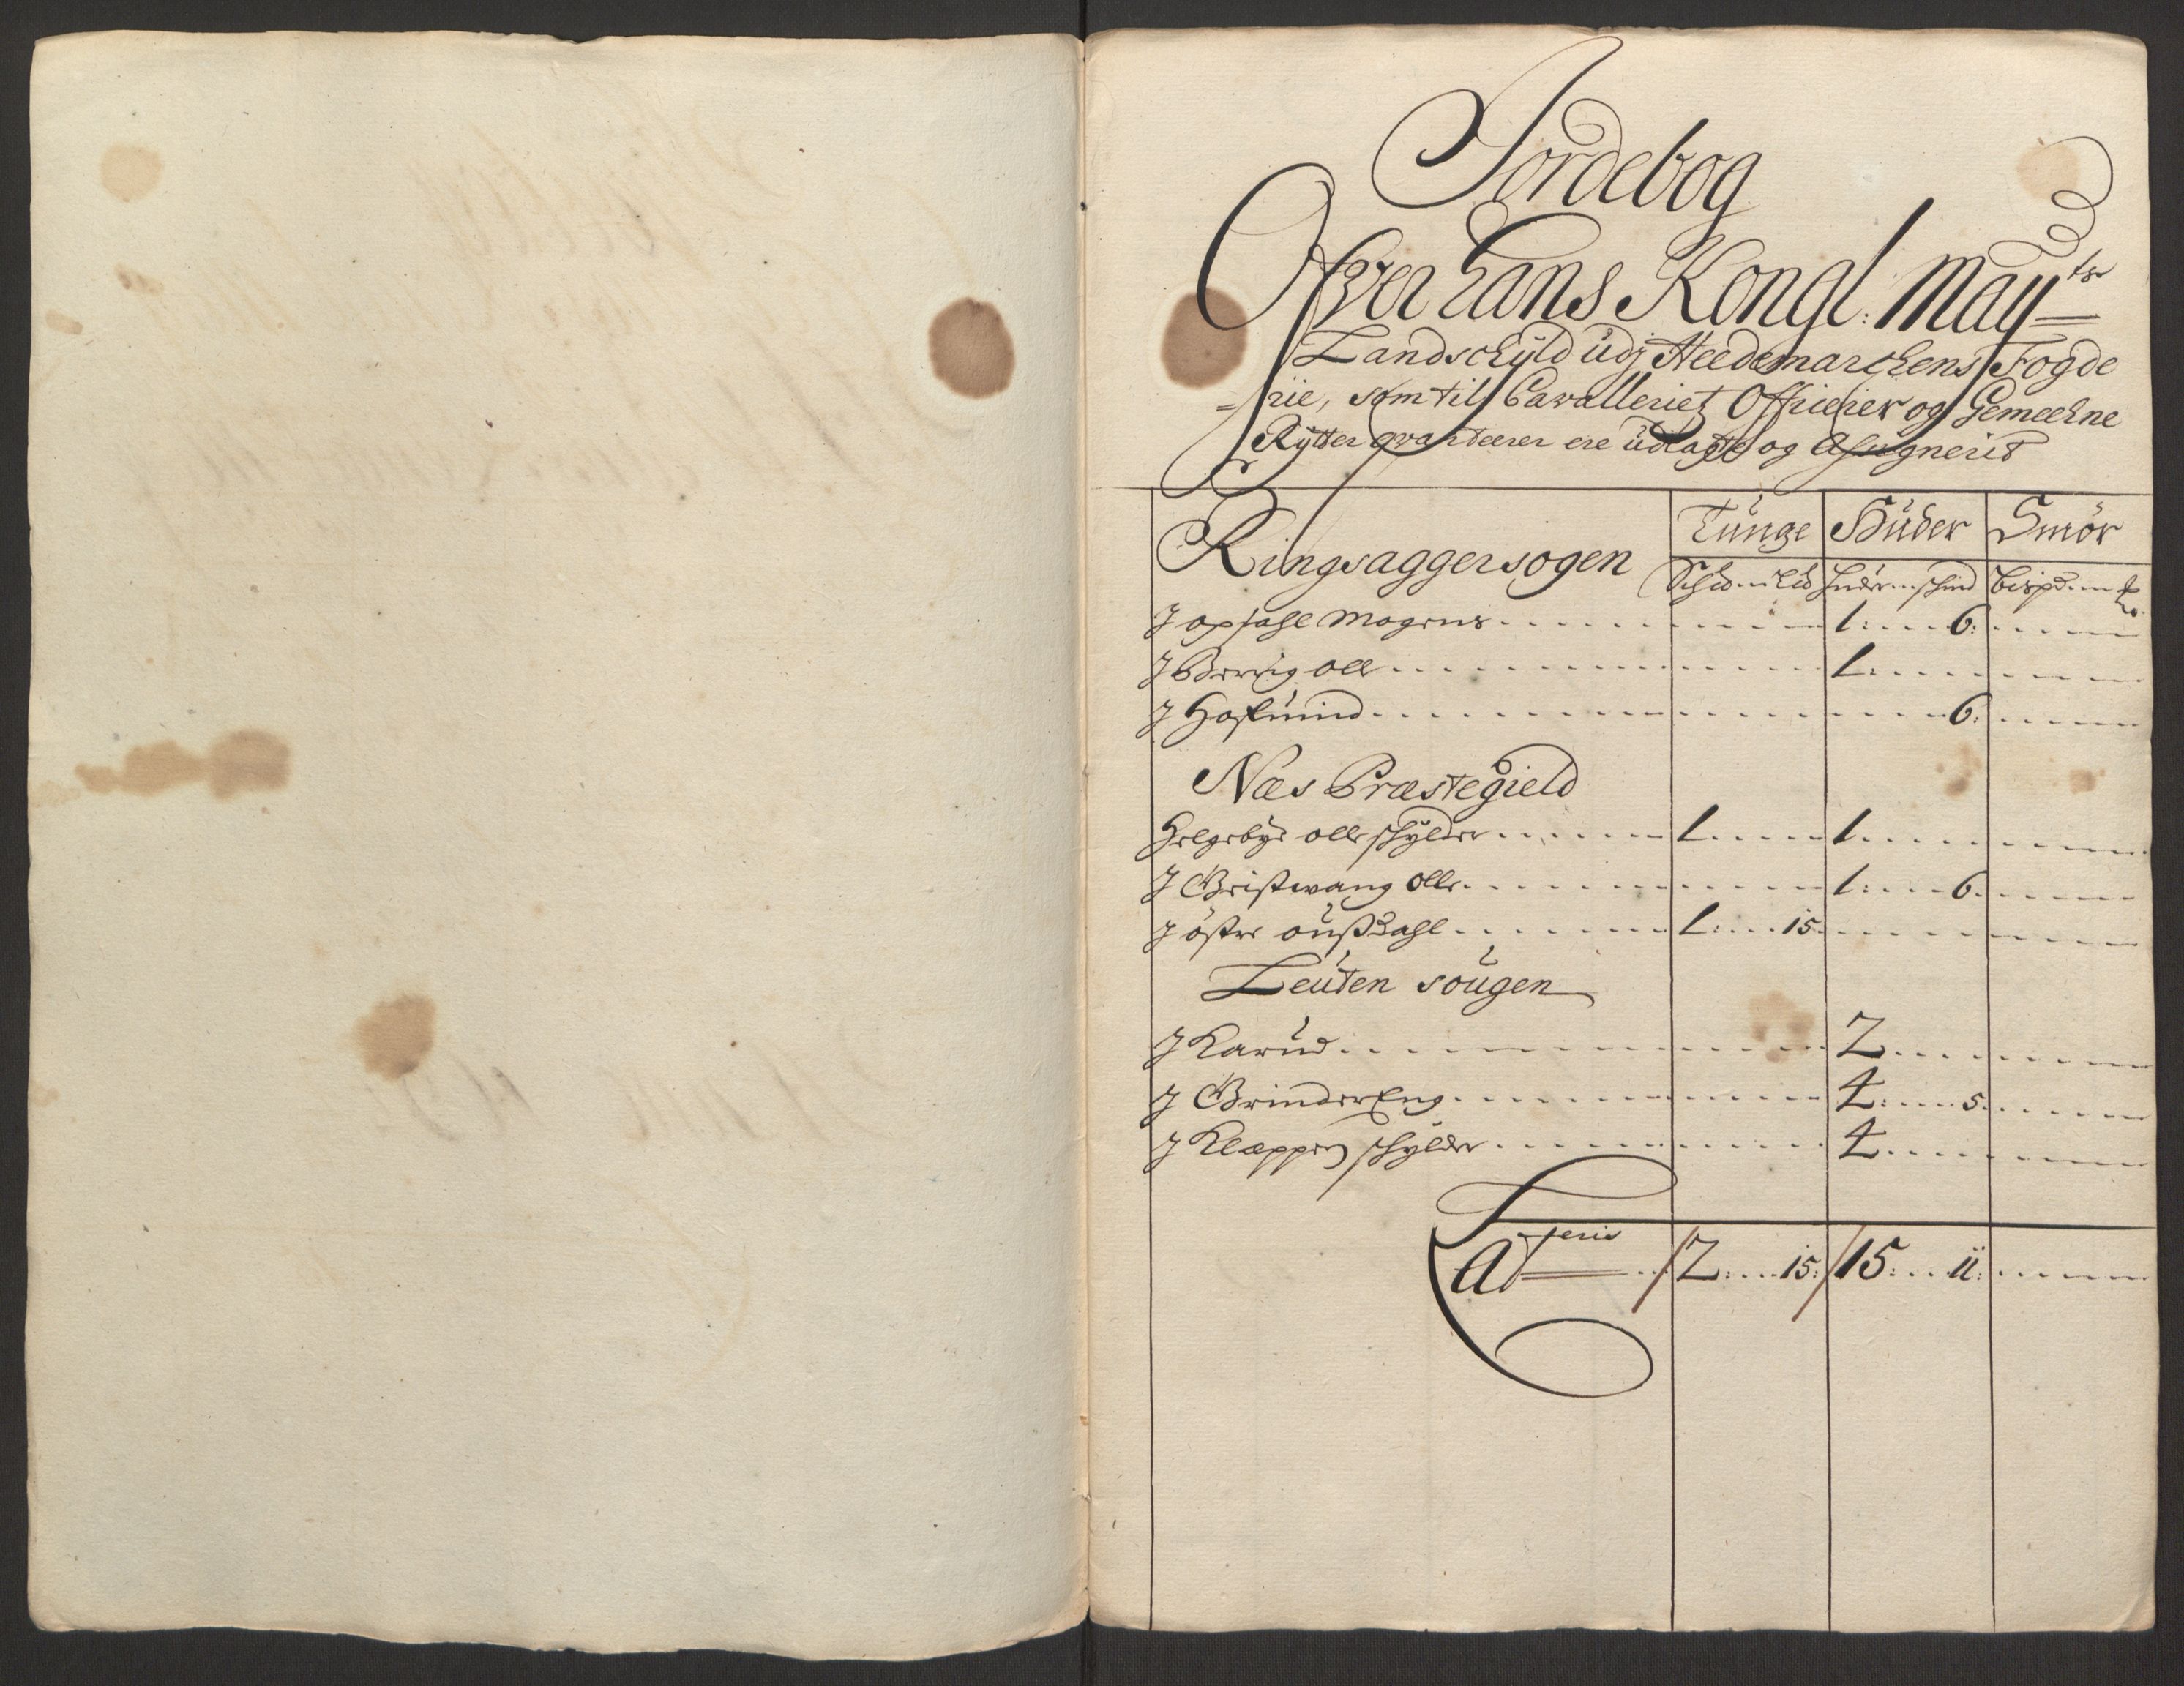 Jordebog
Ofver Hans Kongl: May^ts
Landschÿld udj Heedemarchens Fogde
=rie, som til Cavalleriet Officerer og Gemeehne
Rytter qvarteerer ere udlagte og Assignerit
Ringsaggersogen Tunge Huder Smør
Schid. Lid huder schind bispd.
J opsahl Mogens 1: 6:
J Berrig olle 1:
J Hosmind 6:
Næs Præstegield
Helgebye olle schylder 1 1
J Gristwang Olle 1: 6.
J östre ousdahl 1: 15
Leuten sougen
J Karud 2
J Grinder Eng 4: 5.
J Klæppen schylder 4
Lateris 2: 15: 15: 11: